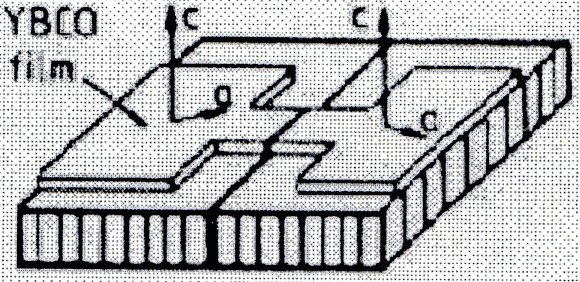 YBCO
film
c
c
a
a